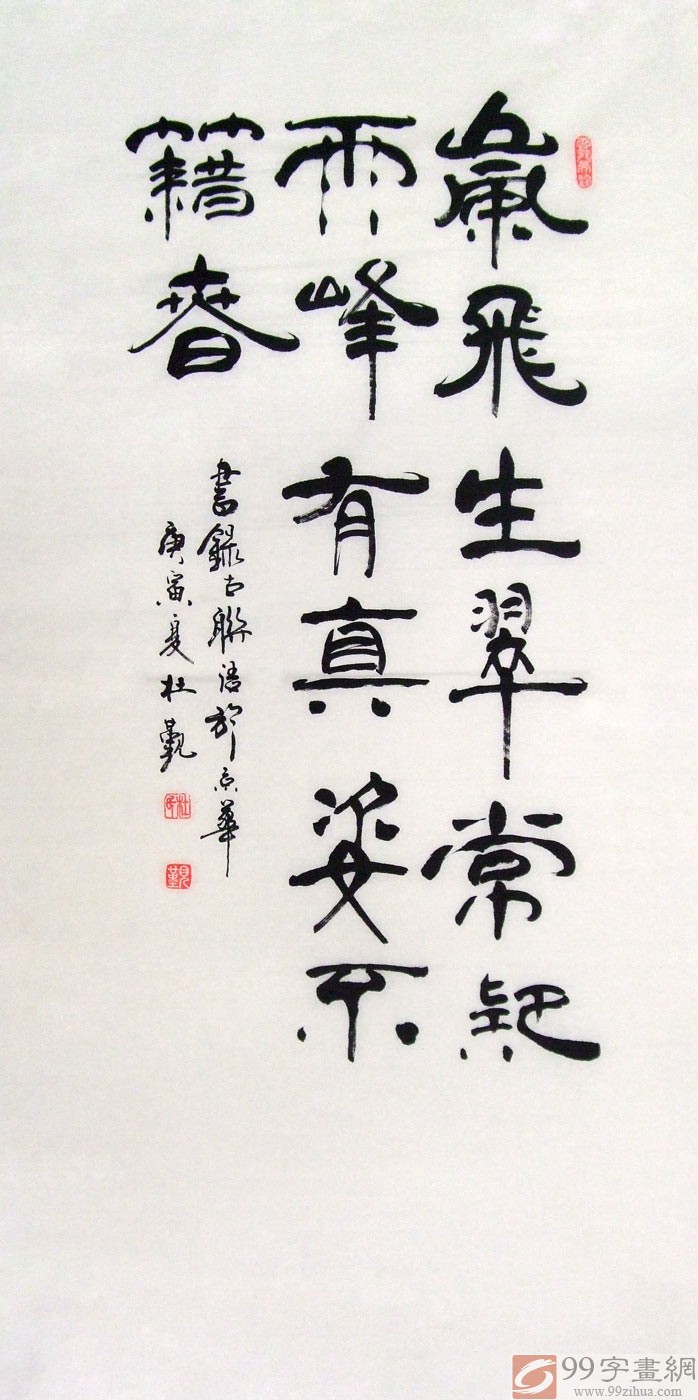 嵐飛生翠常疑
雨峰有真姿不
籍春
書錄古聯語於京華
庚寅夏杜覲
99字畫網
www.99zihua.com